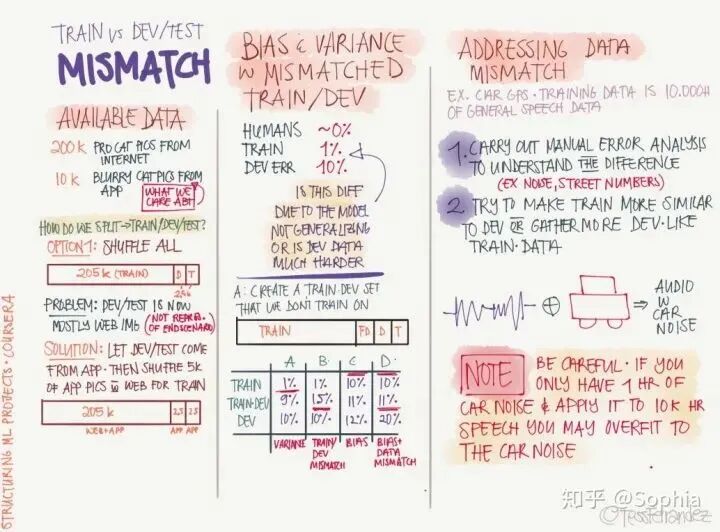 TRAIN vs DEV/TEST
MISMATCH
AVAILABLE DATA
200 k PRO CAT PICS FROM
INTERNET
10 k BLURRY CAT PICS FROM
APP
WHAT WE
CARE ABT
HOW DO WE SPLIT → TRAIN/DEV/TEST?
OPTION 1: SHUFFLE ALL
205 k (TRAIN) D T
PROBLEM: DEV/TEST IS NOW
MOSTLY WEB IMG (NOT REPR.
OF END SCENARIO)
SOLUTION: LET DEV/TEST COME
FROM APP. THEN SHUFFLE 5K
OF APP PICS W WEB FOR TRAIN
205 k 2.5 2.5
WEB + APP APP APP
STRUCTURING ML PROJECTS · COURSERA
BIAS & VARIANCE
W MISMATCHED
TRAIN/DEV
HUMANS ~0%
TRAIN 1%
DEV ERR 10%
IS THIS DIFF
DUE TO THE MODEL
NOT GENERALIZING
OR IS DEV DATA
MUCH HARDER
A: CREATE A TRAIN-DEV SET
THAT WE DON'T TRAIN ON
TRAIN TD D T
A B C D
TRAIN 1% 1% 10% 10%
TRAIN-DEV 9% 1.5% 11% 11%
DEV 10% 10% 12% 20%
VARIANCE TRAIN/ BIAS BIAS+
DEV DATA
MISMATCH MISMATCH
ADDRESSING DATA
MISMATCH
EX. CAR GPS · TRAINING DATA IS 10.000H
OF GENERAL SPEECH DATA
1. CARRY OUT MANUAL ERROR ANALYSIS
TO UNDERSTAND THE DIFFERENCE
(EX NOISE, STREET NUMBERS)
2. TRY TO MAKE TRAIN MORE SIMILAR
TO DEV OR GATHER MORE DEV-LIKE
TRAIN-DATA
AUDIO
W
CAR
NOISE
NOTE BE CAREFUL · IF YOU
ONLY HAVE 1 HR OF
CAR NOISE & APPLY IT TO 10K HR
SPEECH YOU MAY OVERFIT TO
THE CAR NOISE
知乎 @Sophia
@TessFerrandez